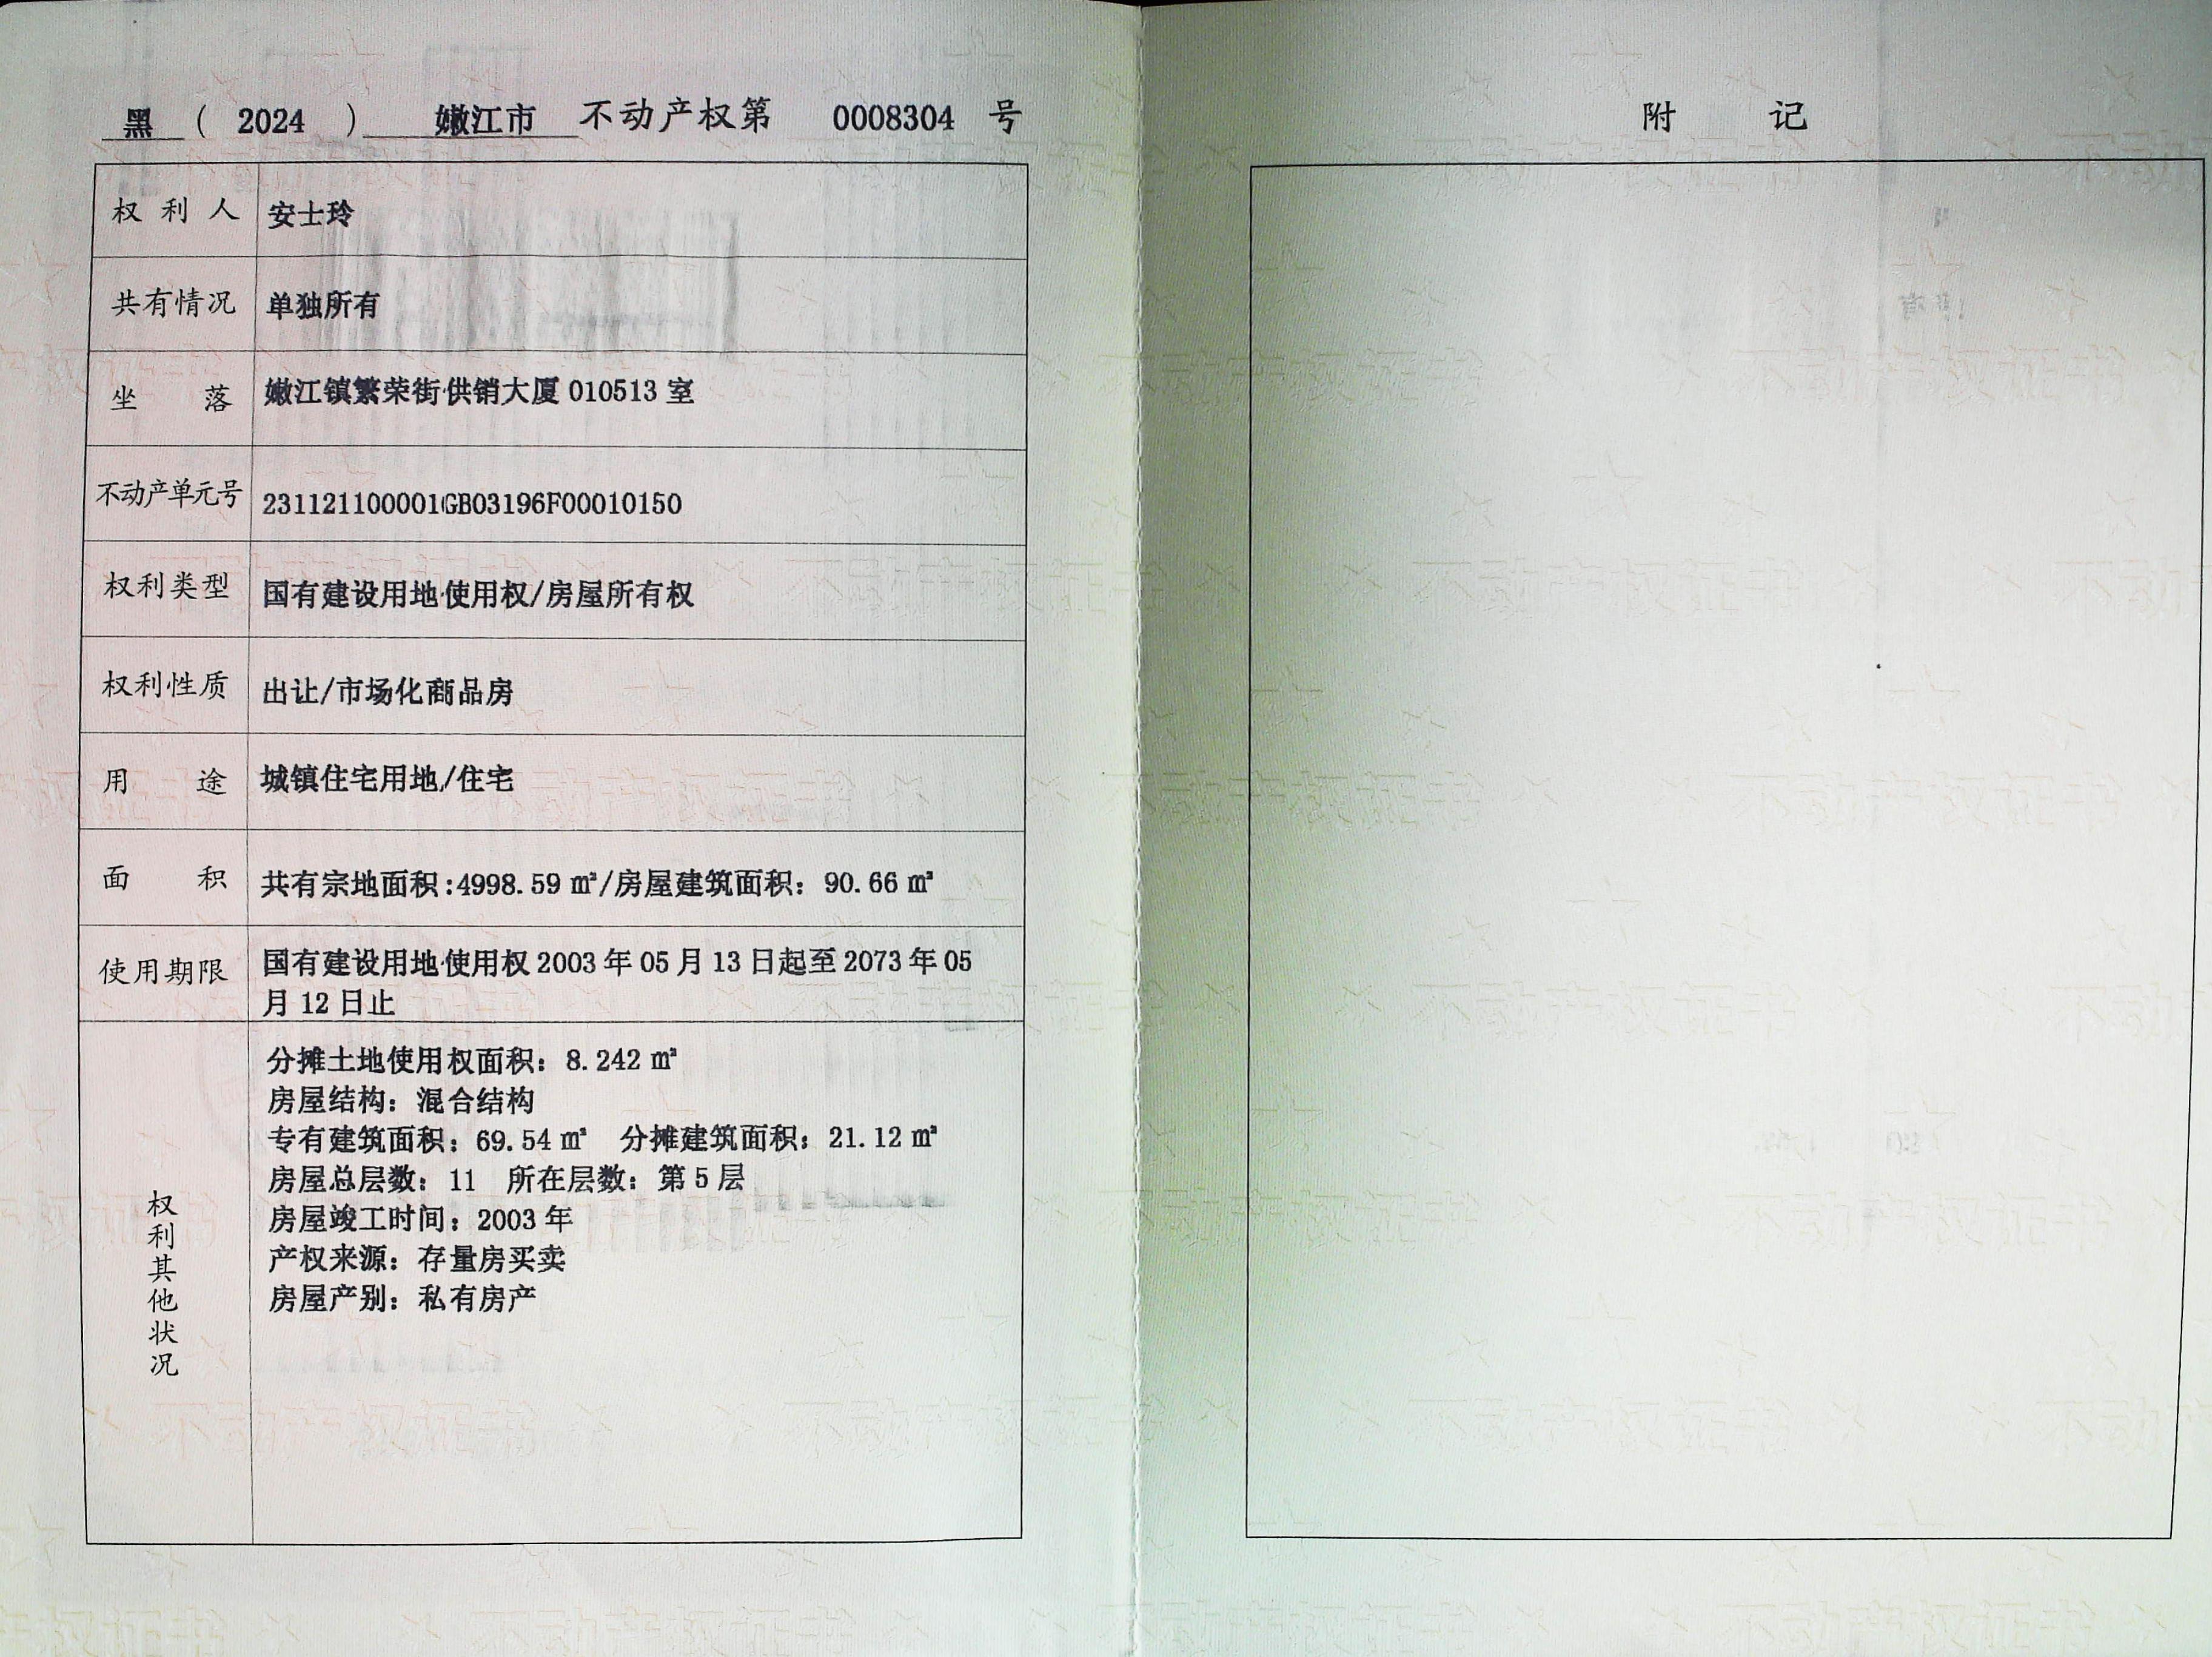 黑 ( 2024 ) 嫩江市 不动产权第 0008304 号
权利人 安士玲
共有情况 单独所有
坐落 嫩江镇繁荣街供销大厦 010513 室
不动产单元号 231121100001GB03196F00010150
权利类型 国有建设用地使用权/房屋所有权
权利性质 出让/市场化商品房
用途 城镇住宅用地/住宅
面积 共有宗地面积:4998.59 ㎡/房屋建筑面积：90.66 ㎡
使用期限 国有建设用地使用权 2003 年 05 月 13 日起至 2073 年 05
月 12 日止
权利其他状况
分摊土地使用权面积：8.242 ㎡
房屋结构：混合结构
专有建筑面积：69.54 ㎡ 分摊建筑面积：21.12 ㎡
房屋总层数：11 所在层数：第 5 层
房屋竣工时间：2003 年
产权来源：存量房买卖
房屋产别：私有房产
附记